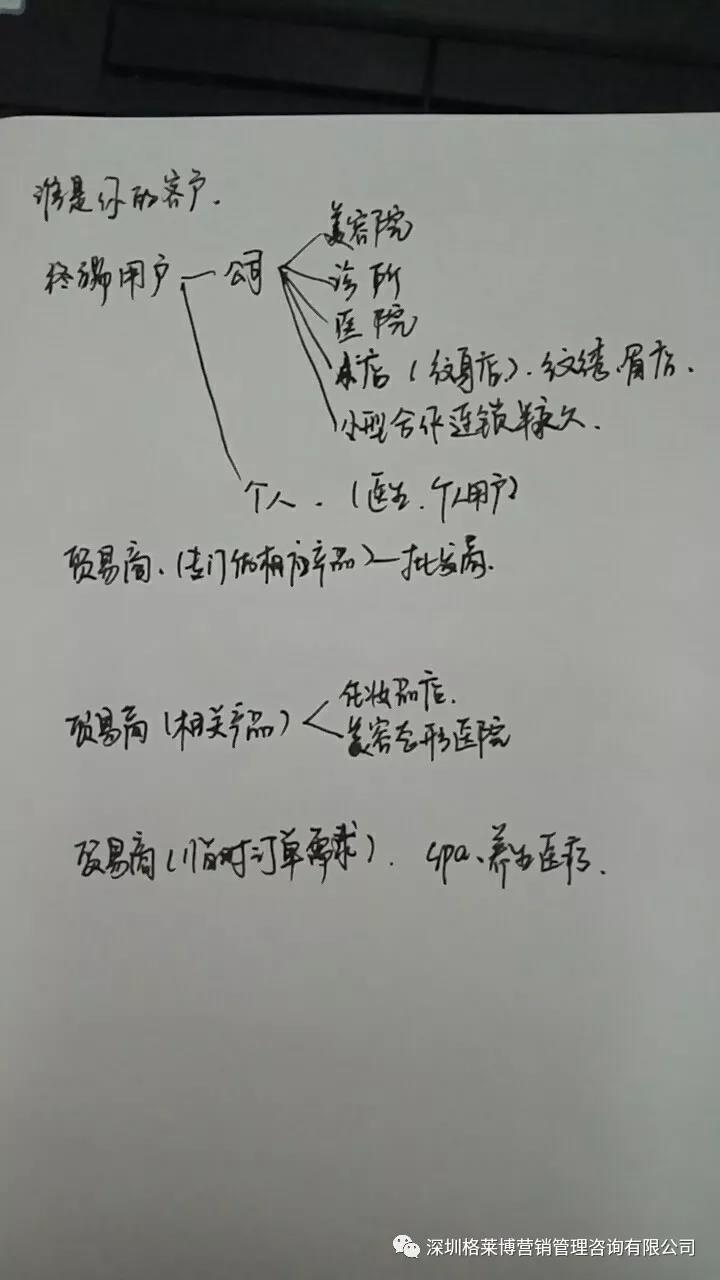 谁是你的客户.
终端用户 — 公司
美容院
诊所
医院
店(纹身店).纹绣.眉店.
小型合作连锁
个人.(医生.个人用户)
贸易商.(专门做相应产品)—批发商.
贸易商(相关产品)
化妆品店.
美容整形医院
贸易商(临时订单需求). spa、养生医疗.
深圳格莱博营销管理咨询有限公司